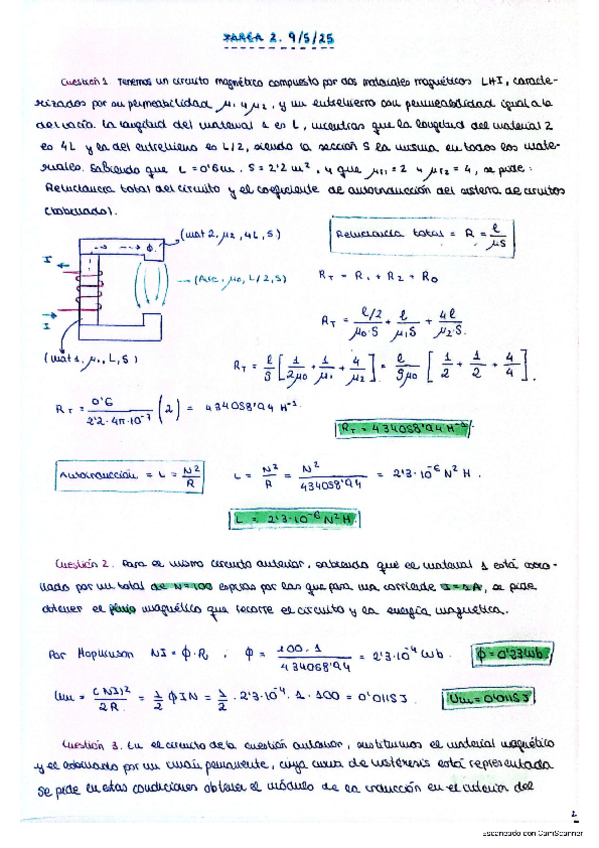 TAREA 2. 9/5/25
Cuestión 1. Tenemos un circuito magnético compuesto por dos materiales magnéticos LHI, caracte-
rizados por su permeabilidad μ1 y μ2, y un entrehierro con permeabilidad igual a la
del vacío. La longitud del material 1 es L, mientras que la longitud del material 2
es 4L y la del entrehierro es L/2, siendo la sección S la misma en todos los mate-
riales. Sabiendo que L = 0'6m. S = 2'2 m², y que μr1 = 2 y μr2 = 4, se pide:
Reluctancia total del circuito y el coeficiente de autoinducción del sistema de circuitos
(bobinado).
(mat 2, μ2, 4L, S)
Φ
I
(Aire, μ0, L/2, S)
I
(mat 1, μ1, L, S)
Reluctancia total = R = ℓ/μS
RT = R1 + R2 + R0
RT = (ℓ/2)/(μ0·S) + ℓ/(μ1S) + 4ℓ/(μ2·S).
RT = ℓ/S [1/2μ0 + 1/μ1 + 4/μ2] = ℓ/Sμ0 [1/2 + 1/2 + 4/4].
RT = 0'6/(2'2·4π·10⁻⁷) (2) = 434058'94 H⁻¹
RT = 434058'94 H⁻¹
Autoinducción = L = N²/R
L = N²/R = N²/434058'94 = 2'3·10⁻⁶ N² H.
L = 2'3·10⁻⁶ N² H
Cuestión 2. Para el mismo circuito anterior, sabiendo que el material 1 está
por un total de N=100 espiras por las que para una corriente I = 1A, se pide
obtener el flujo magnético que recorre el circuito y la energía magnética.
Por Hopkinson NI = Φ·R, Φ = 100·1/434058'94 = 2'3·10⁻⁴ Wb.
Φ = 0'23 Wb
Um = (NI)²/2R = 1/2 ΦIN = 1/2 · 2'3·10⁻⁴ · 1 · 100 = 0'0115 J.
Um = 0'0115 J
Cuestión 3. En el circuito de la cuestión anterior, sustituimos el material magnético
y el bobinado por un imán permanente, cuya curva de histéresis está representada
Se pide en estas condiciones obtener el módulo de la inducción en el interior del
2
Escaneado con CamScanner